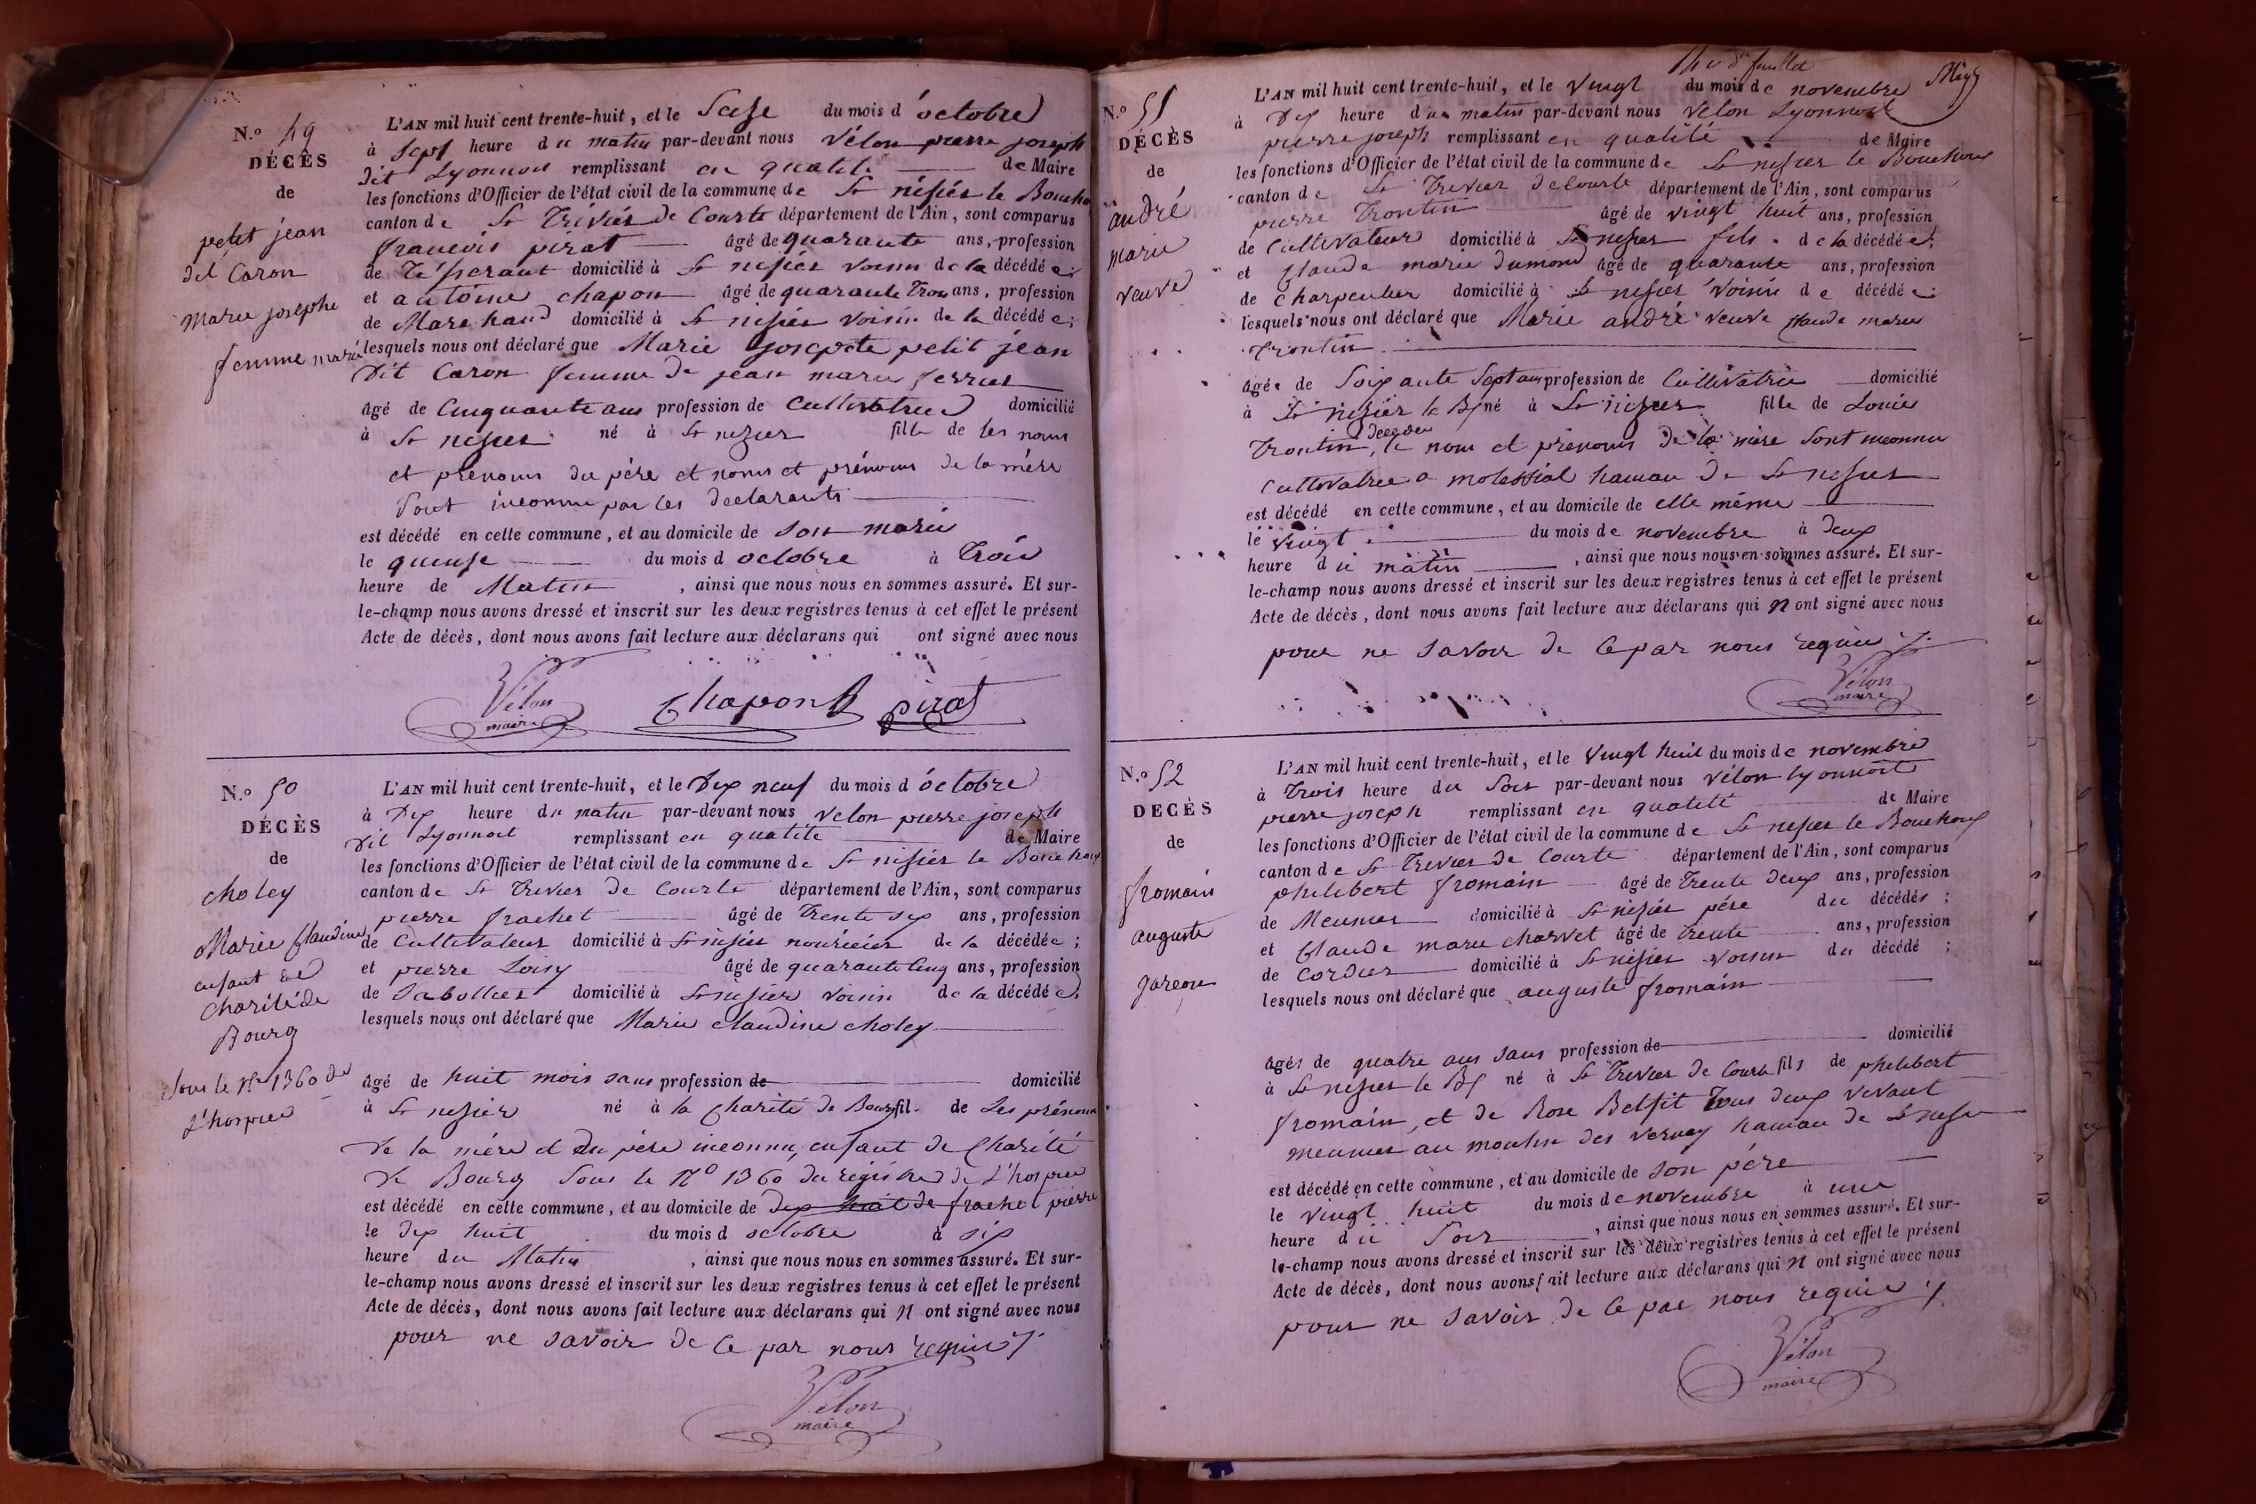 N.° 49
DÉCÈS
de
petit jean
dit Caron
marie josephe
femme marié
L'AN mil huit cent trente-huit, et le Seize du mois d'octobre
à Sept heure du matin par-devant nous Vélon pierre joseph
dit Lyonnois remplissant en qualité de Maire
les fonctions d'Officier de l'état civil de la commune de St nisiér le Boucho
canton de St Triviér de Courte département de l'Ain, sont comparus
francois pirat âgé de quarante ans, profession
de Tisserant domicilié à St nisiér voisin de la décédée;
et antoine chapon âgé de quarante Trois ans, profession
de Marechand domicilié à St nisiér voisin de la décédée;
lesquels nous ont déclaré que Marie josephte petit jean
dit Caron femme de jean marie ferrier
âgé de Cinquante ans profession de Cultivatrice domicilié
à St nisier né à St nizier fille de les noms
et prénoms du pére et noms et prénoms de la mére
Sont inconnu par les declarants
est décédé en cette commune, et au domicile de son marié
le quinze du mois d octobre à Trois
heure de Matin, ainsi que nous nous en sommes assuré. Et sur-
le-champ nous avons dressé et inscrit sur les deux registres tenus à cet effet le présent
Acte de décès, dont nous avons fait lecture aux déclarans qui ont signé avec nous
Vélon
maire
Chapon
pirat
N.° 50
DÉCÈS
de
choley
Marie Claudine
enfant de
Charité de
Bourg
Sous le N° 1360 de
L'hospice
L'AN mil huit cent trente-huit, et le Dix neuf du mois d'octobre
à Dix heure du matin par-devant nous Velon pierre joseph
dit Lyonnoit remplissant en qualité de Maire
les fonctions d'Officier de l'état civil de la commune de St nisiér le Bouchoux
canton de St Trivier de Courte département de l'Ain, sont comparus
pierre frachet âgé de Trente six ans, profession
de Cultivateur domicilié à St nisiér nouricier de la décédée;
et pierre Loisy âgé de quarante Cinq ans, profession
de Sabottier domicilié à St nisiér voisin de la décédée;
lesquels nous ont déclaré que Marie Claudine choley
âgé de huit mois sans profession de domicilié
à St nisiér né à la Charité de Bourg fil de Les prénoms
de la mére et du pére inconnu, enfant de Charité
de Bourg Sous le N° 1360 du régistre de L'hospice
est décédé en cette commune, et au domicile de dix huit de frachet pierre
le dix huit du mois d octobre à six
heure du Matin, ainsi que nous nous en sommes assuré. Et sur-
le-champ nous avons dressé et inscrit sur les deux registres tenus à cet effet le présent
Acte de décès, dont nous avons fait lecture aux déclarans qui n ont signé avec nous
pour ne savoir de ce par nous requis
Vélon
maire
feuillet
N.° 51
DÉCÈS
de
andré
marie
veuve
L'AN mil huit cent trente-huit, et le Vingt du mois de novembre
à Dix heure du matin par-devant nous Velon Lyonnoit
pierre joseph remplissant en qualité de Maire
les fonctions d'Officier de l'état civil de la commune de St nisier le Bouchoux
canton de St Trivier de Courte département de l'Ain, sont comparus
pierre Trontin âgé de vingt huit ans, profession
de Cultivateur domicilié à St nisier fils de la décédée;
et Claude marie dumond âgé de quarante ans, profession
de Charpentier domicilié à St nisier Voisin de décédée;
lesquels nous ont déclaré que Marie andré veuve Claude marie
Trontin
âgée de Soixante Sept ans profession de Cultivatrice domicilié
à St nisiér le Bx né à St nisier fille de Louis
Trontin, décédé le nom et prénoms de la mére Sont inconnu
Cultivatrice a molessial hamau de St nisier
est décédé en cette commune, et au domicile de elle même
le vingt du mois de novembre à deux
heure du matin, ainsi que nous nous en sommes assuré. Et sur-
le-champ nous avons dressé et inscrit sur les deux registres tenus à cet effet le présent
Acte de décès, dont nous avons fait lecture aux déclarans qui n ont signé avec nous
pour ne savoir de ce par nous requis
Vélon
maire
N.° 52
DÉCÈS
de
fromain
auguste
garcon
L'AN mil huit cent trente-huit, et le Vingt huit du mois de novembre
à Trois heure du Soir par-devant nous Vélon Lyonnoit
pierre joseph remplissant en qualité de Maire
les fonctions d'Officier de l'état civil de la commune de St nisier le Bouchoux
canton de St Trivier de Courte département de l'Ain, sont comparus
philibert fromain âgé de Trente deux ans, profession
de Meunier domicilié à St nisiér pére du décédés;
et Claude marie Charvet âgé de trente ans, profession
de Cordier domicilié à St nisiér voisin du décédé;
lesquels nous ont déclaré que auguste fromain
âgés de quatre ans sans profession de domicilié
à St nisier le Bx né à St Trivier de Courte fils de philibert
fromain, et de Rose Belfit Tous deux vivant
meunier au moulin des vernay hamau de St nisier
est décédé en cette commune, et au domicile de son pére
le vingt huit du mois de novembre à une
heure du Soir, ainsi que nous nous en sommes assuré. Et sur-
le-champ nous avons dressé et inscrit sur les deux registres tenus à cet effet le présent
Acte de décès, dont nous avons fait lecture aux déclarans qui n ont signé avec nous
pour ne savoir de ce par nous requis
Vélon
maire